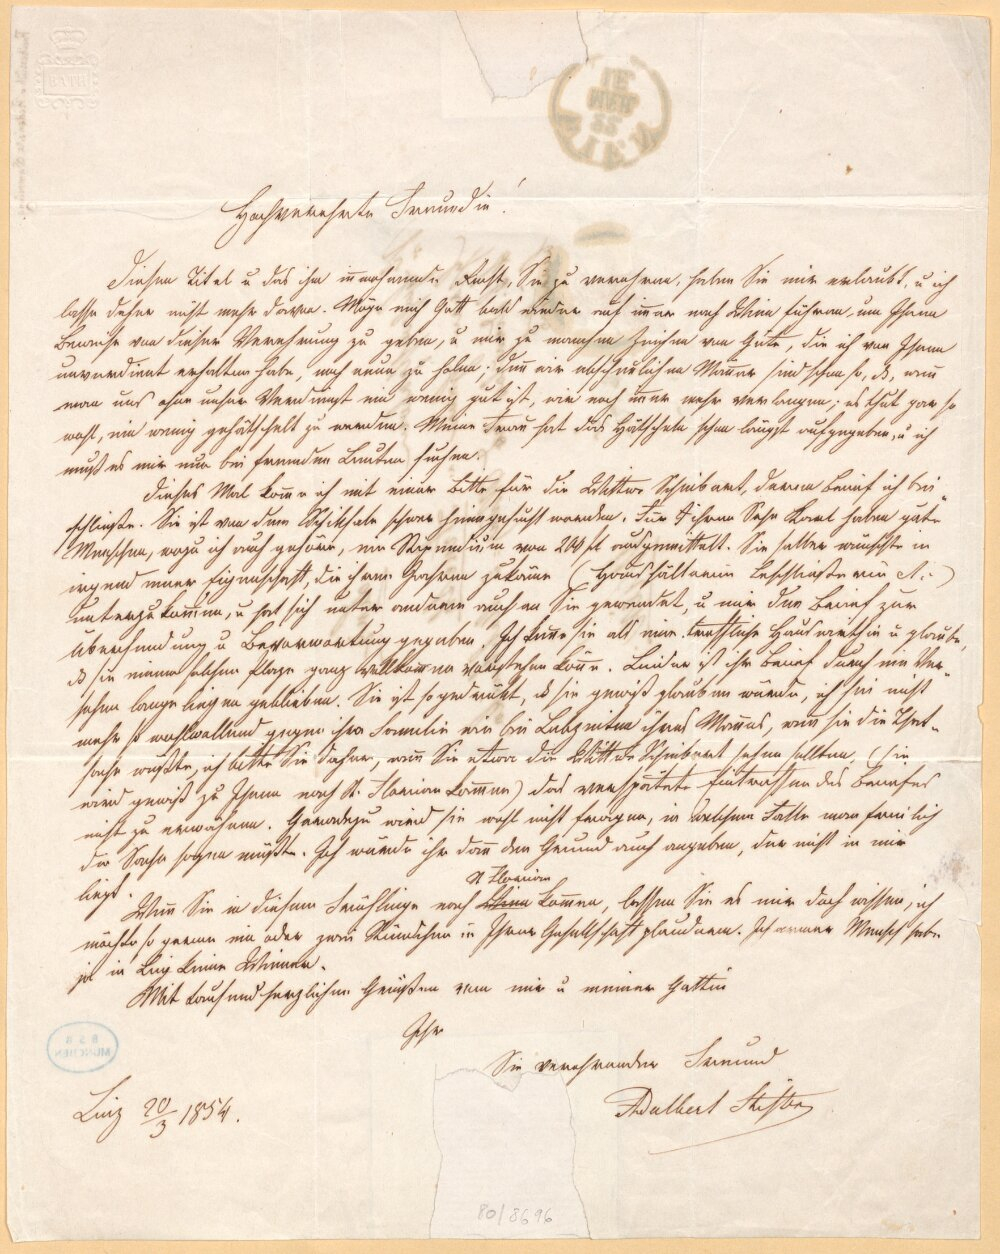 BATH
WIEN
22
MRZ
Hochverehrte Freundin!
Diesen Titel u das ihm innewohnende Recht, Sie zu verehren, haben Sie mir erlaubt, u ich
lasse daher nicht mehr davon. Möge mich Gott bald wieder auf immer nach Wien führen, um Ihnen
Beweise von dieser Verehrung zu geben, u mir zu manchen Zeichen von Güte, die ich von Ihnen
unverdient erhalten habe, noch neue zu holen; denn wir abscheulichen Männer sind schon so, daß, wenn
man uns ohne unser Verdienst ein wenig gut ist, wir noch immer mehr verlangen; es thut gar so
wohl, ein wenig gehätschelt zu werden. Meine Frau hat das Hätscheln schon längst aufgegeben, u ich
muß es mir nur bei fremden Leuten suchen.
Dieses Mal komme ich mit einer Bitte für die Wittwe Schibart, deren Brief ich bei-
schließe. Sie ist von dem Schiksale schwer heimgesucht worden. Für ihren Sohn Karl haben gute
Menschen, wozu ich auch gehöre, ein Stipendium von 200 fl ausgemittelt. Sie selber wünschte in
irgend einer Eigenschaft, die ihrem zukäme (Haushälterin Beschließerin etc.)
unterzukommen, u hat sich unter anderen auch an Sie gewendet, u mir den Brief zur
Übersendung u Bevorwortung gegeben. Ich kenne sie als eine treffliche Hauswirthin u glaube,
daß sie einem solchen Plaze ganz vollkommen vorstehen könne. Leider ist ihr Brief durch ein Ver-
sehen lange liegen geblieben. Sie ist so gedrükt, daß sie gewiß glauben würde, ich sei nicht
mehr so wohlwollend gegen ihre Familie wie bei Lebzeiten ihres Mannes, wenn sie die That-
sache wüßte, ich bitte Sie daher, wenn Sie etwa die Wittwe Schibart sehen sollten, (sie
wird gewiß zu Ihnen nach St. Florian kommen) das verspätete Eintreffen des Briefes
nicht zu erwähnen. Geradezu wird sie wohl nicht fragen, in welchem Falle man freilich
die Sache sagen müßte. Ich würde ihr dann den Grund auch angeben, der nicht in mir
liegt.
St Florian
Wenn Sie in diesem Frühlinge nach Wien kommen, lassen Sie es mir doch wissen, ich
möchte so gerne ein oder zwei Stündchen in Ihrer Gesellschaft plaudern. Ich armer Mensch habe
ja in Linz keine Wiener.
Mit tausend herzlichen Grüßen von mir u meiner Gattin
Ihr
Sie verehrender Freund
Adalbert Stifter
Linz 20/3 1854.
BSB
MÜNCHEN
80/8696